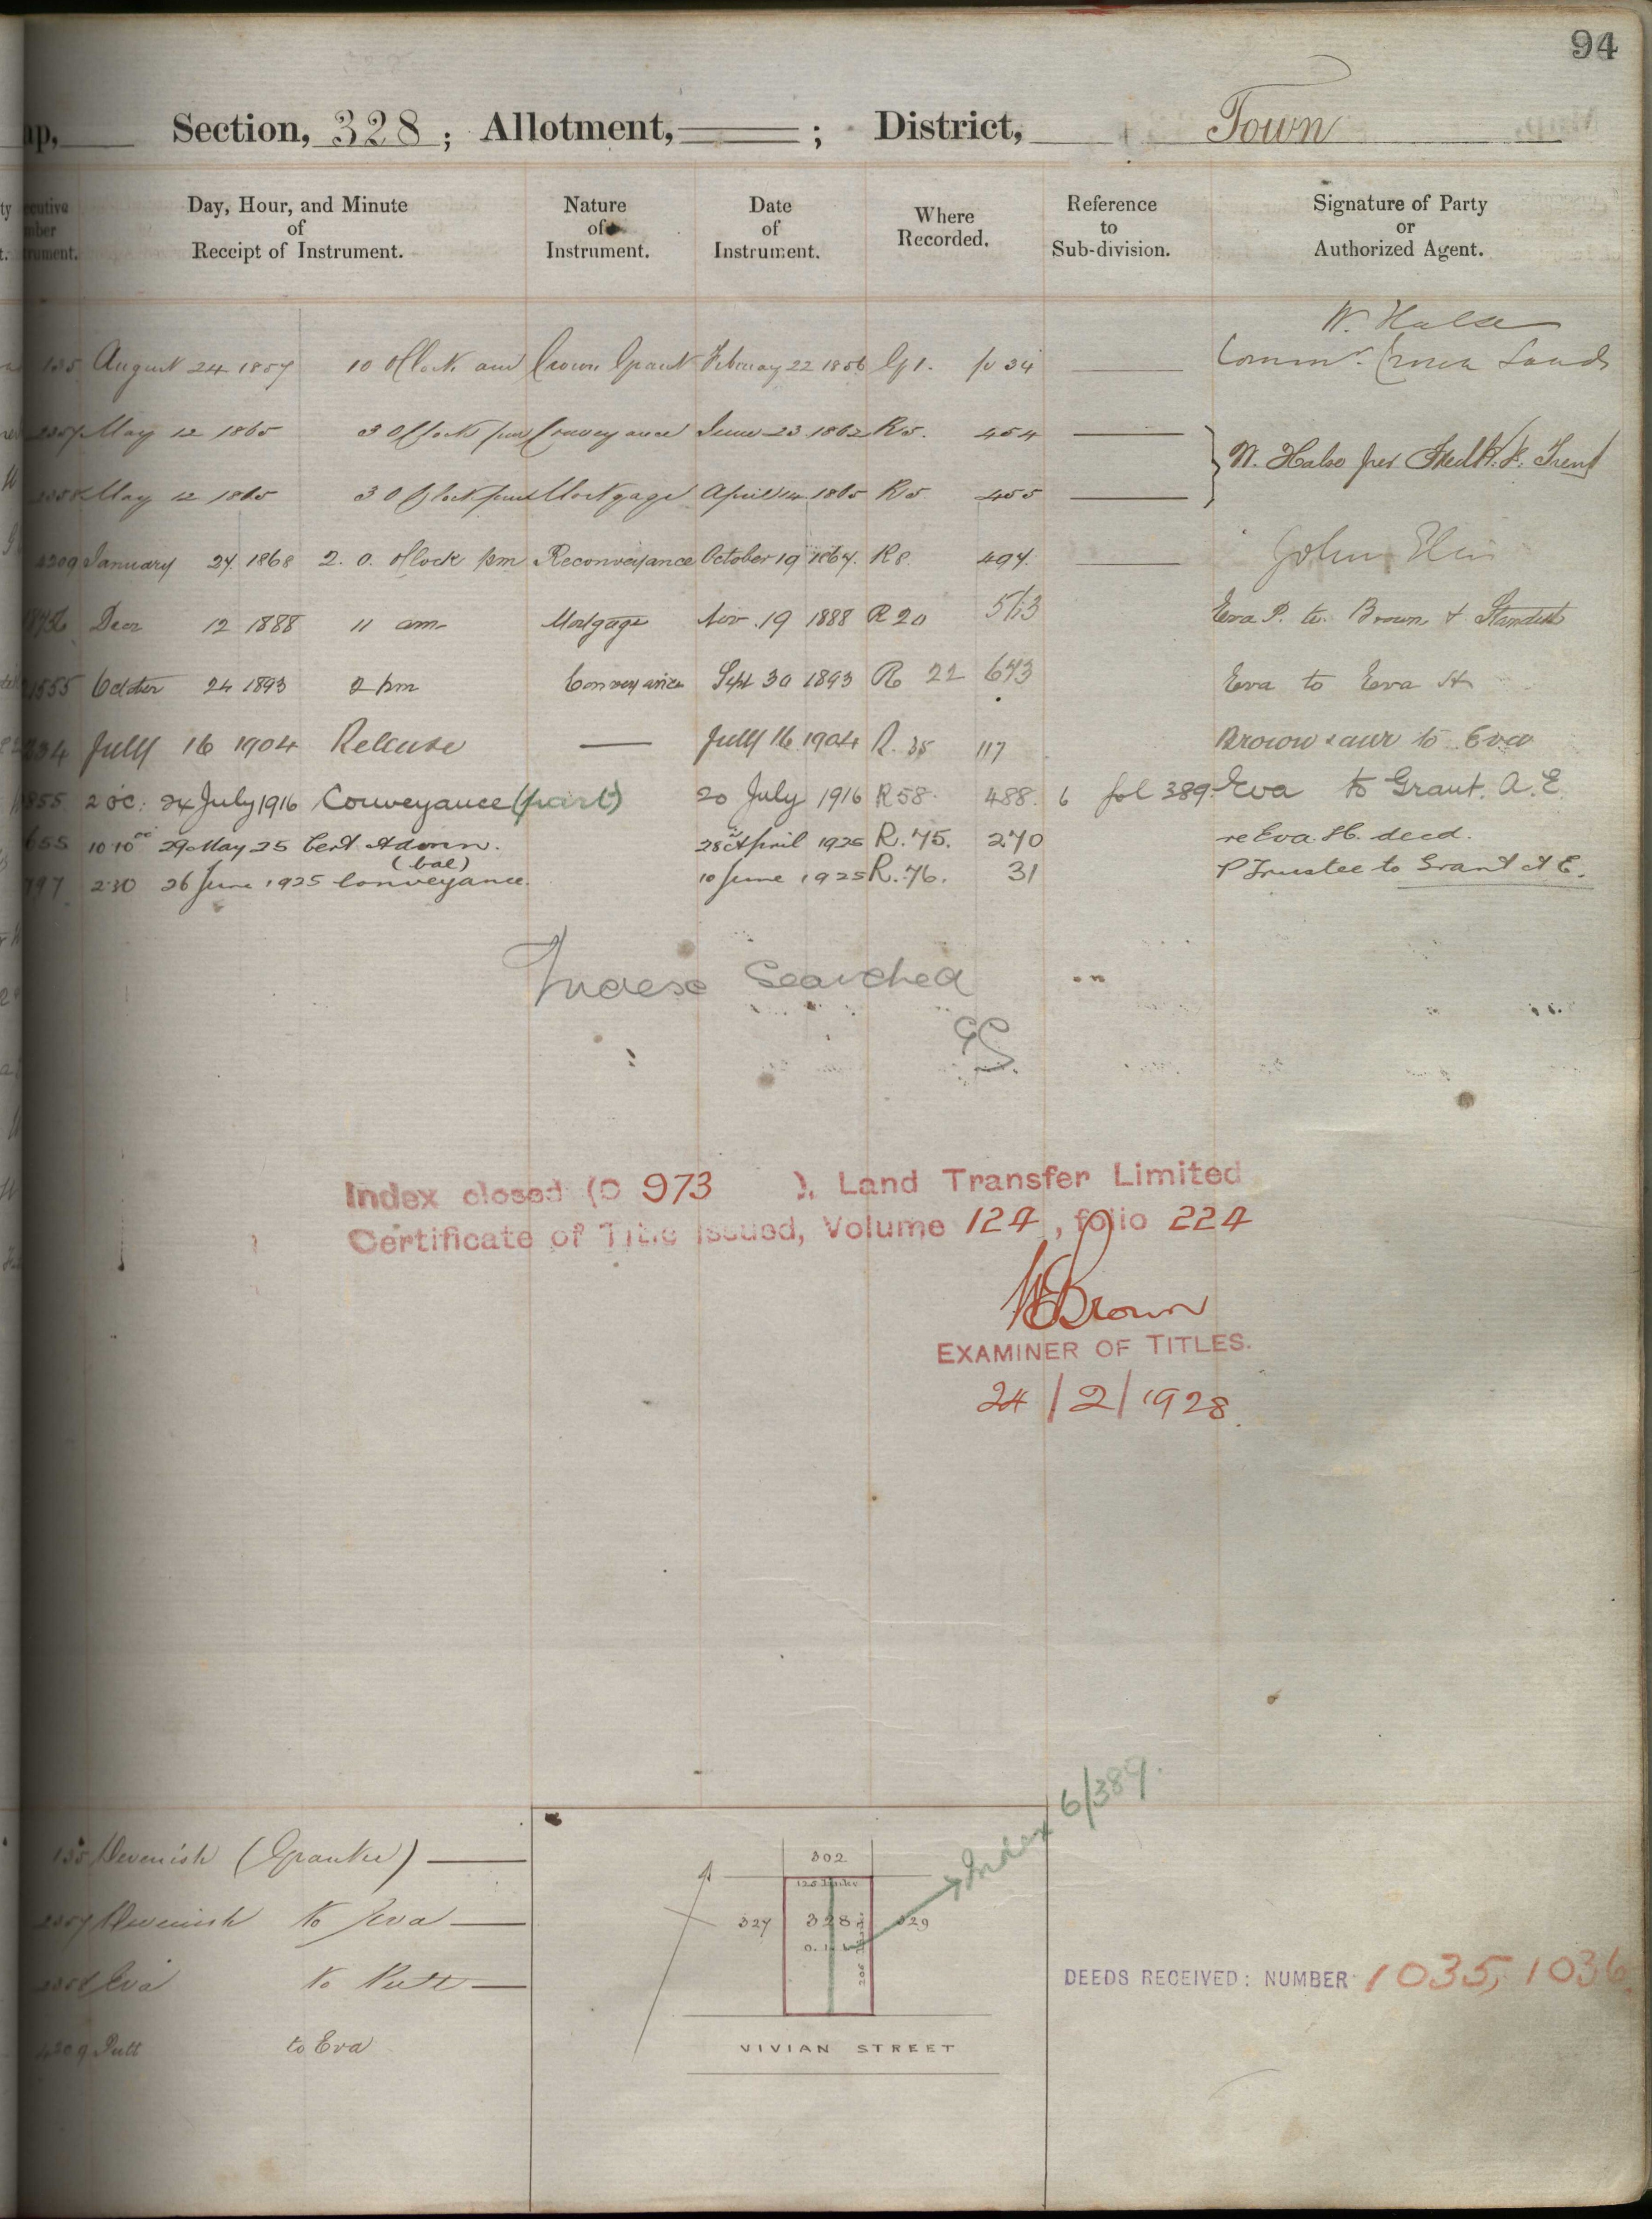 94
Section, 328 ; Allotment, ; District, Town
Day, Hour, and Minute of Receipt of Instrument.
Nature of Instrument.
Date of Instrument.
Where Recorded.
Reference to Sub-division.
Signature of Party or Authorized Agent.
W. Halse
135 August 24 1857 10 O'Clock am Crown Grant February 22 1856 G 1. p 34 Commr. Crown Lands
2357 May 12 1865 3 O'Clock pm Conveyance June 23 1862 R 5. 454
W. Halse per
2358 May 12 1865 3 O'Clock pm Mortgage April 14 1865 R 5 455
4209 January 24 1868 2. 0. O'Clock pm Reconveyance October 19 1867. R 8. 494. John
Decr 12 1888 11 am Mortgage Nov. 19 1888 R 20 573 Eva P. to Brown & Standish
October 24 1893 2 pm Conveyance Sept 30 1893 R 22 673 Eva to Eva H
July 16 1904 Release July 16 1904 R. 35 117 Brown & anr to Eva
2 oc. 24 July 1916 Conveyance (part) 20 July 1916 R 58. 488. 6 fol 389. Eva to Grant. A. E.
10 10 29 May 25 Cert Admn. 28 April 1925 R. 75. 270 re Eva. H. decd.
(bal)
2.30 26 June 1925 Conveyance. 10 June 1925 R. 76. 31 P Trustee to Grant A E.
Index Searched
Index closed (C 973 ), Land Transfer Limited
Certificate of Title issued, Volume 124, folio 224
Brown
EXAMINER OF TITLES.
24/2/1928.
135 Devenish (Grantee)
2357 Devenish to Eva
2358 Eva to Putt
4209 Putt to Eva
Index 6/389.
302
327 328 329
206
VIVIAN STREET
DEEDS RECEIVED: NUMBER 1035, 1036